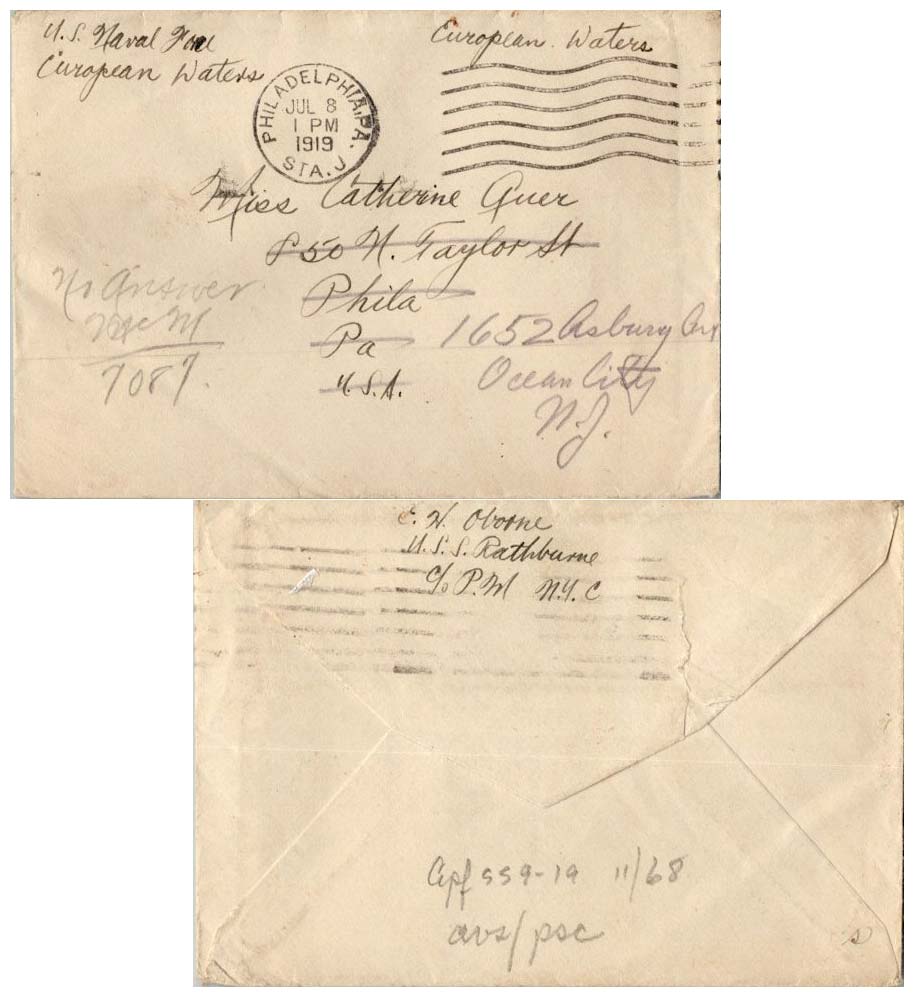 U.S. Naval Force
European Waters
European Waters
PHILADELPHIA, PA.
JUL 8
1 PM
1919
STA. J
Miss Catherine Auer
850 N. Taylor St
Phila
Pa
U.S.A.
No Answer
McM
7087.
1652 Asbury Ave
Ocean City
N.J.
E. H. Oborne
U.S.S. Rathburne
C/o P.M N.Y.C
559-19 11/68
avs/psc